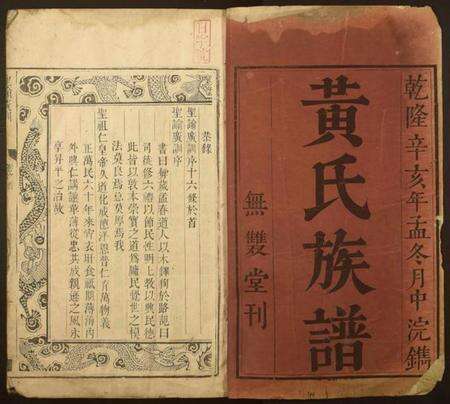 乾隆辛亥年孟冬月中浣鐫
黃氏族譜
無雙堂刊
恭錄
聖諭廣訓序十六條於首
聖諭廣訓序
書曰每歲孟春遒人以木鐸徇於路記曰
司徒修六禮以節民性明七教以興民德
此皆以敦本崇實之道為牖民覺世之模
法莫良焉意莫厚焉我
聖祖仁皇帝久道化成德洋恩普仁育萬物義
正萬民六十年來宵衣旰食祗期薄海內
外興仁講讓革薄從忠共成親遜之風永
享昇平之治故